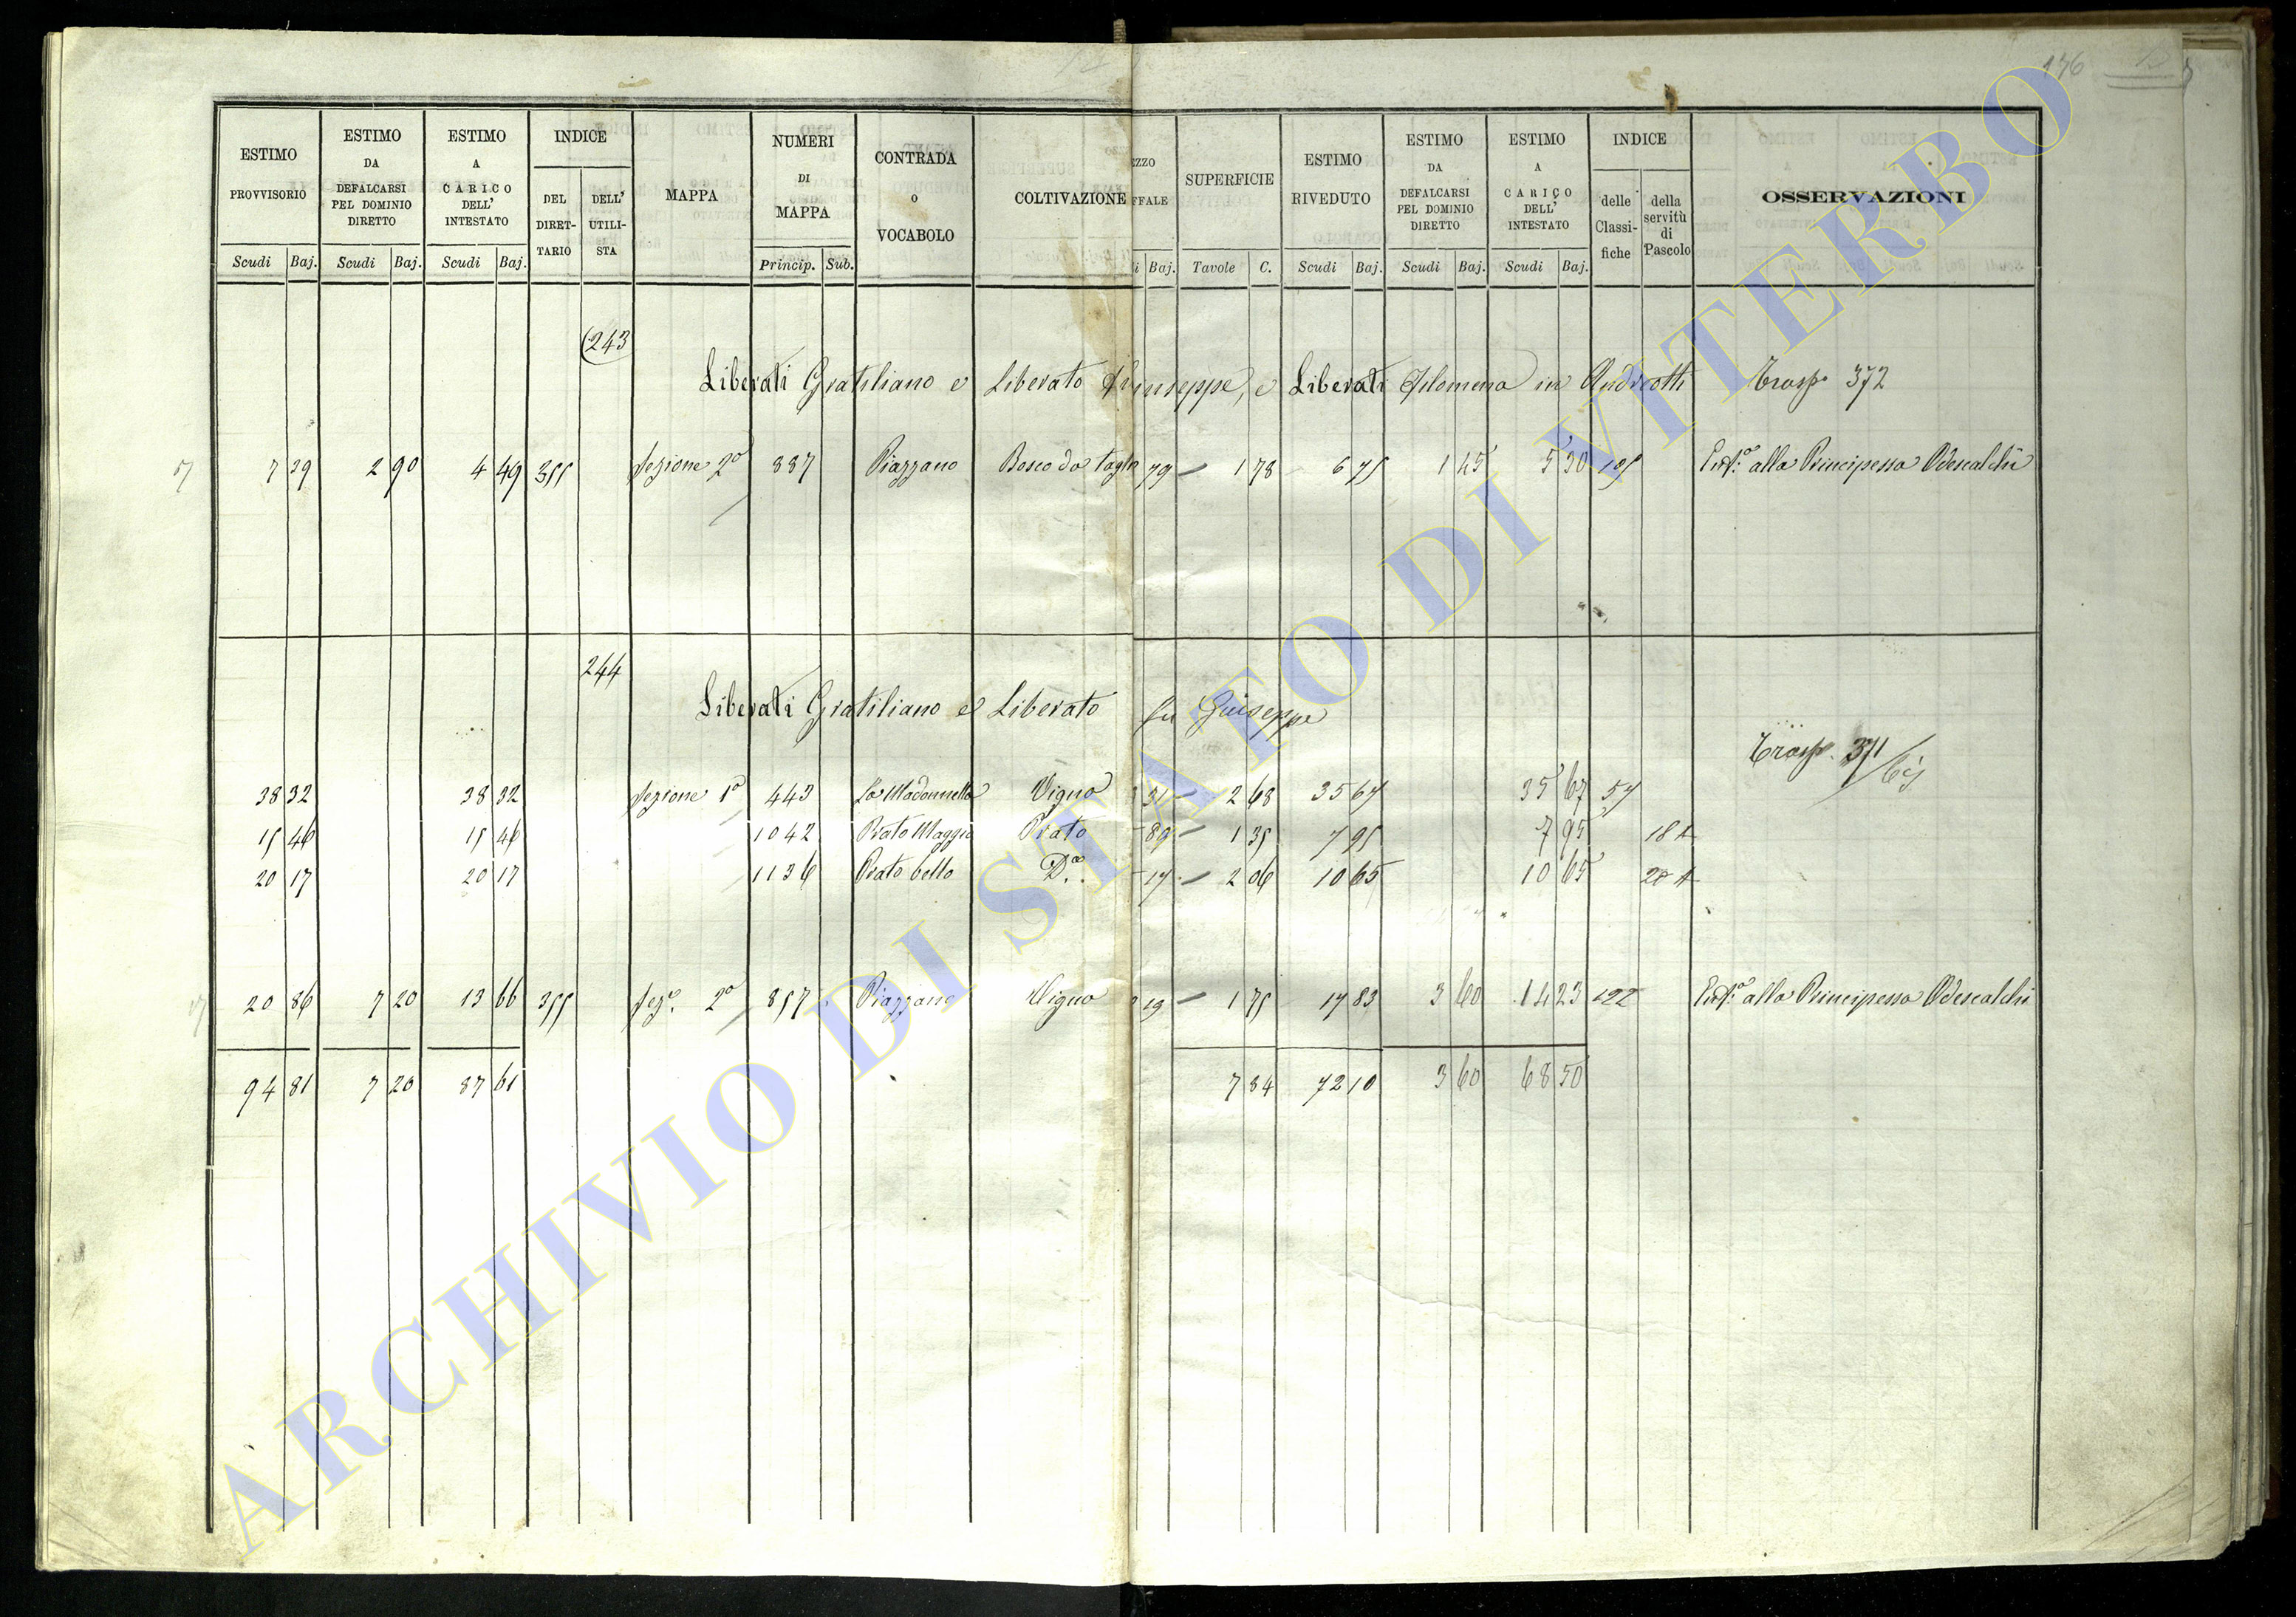 176
ESTIMO PROVVISORIO Scudi Baj.
ESTIMO DA DEFALCARSI PEL DOMINIO DIRETTO Scudi Baj.
ESTIMO A CARICO DELL' INTESTATO Scudi Baj.
INDICE DEL DIRET-TARIO DELL' UTILI-STA
MAPPA
NUMERI DI MAPPA Princip. Sub.
CONTRADA O VOCABOLO
COLTIVAZIONE
EZZO FFALE i Baj.
SUPERFICIE Tavole C.
ESTIMO RIVEDUTO Scudi Baj.
ESTIMO DA DEFALCARSI PEL DOMINIO DIRETTO Scudi Baj.
ESTIMO A CARICO DELL' INTESTATO Scudi Baj.
INDICE delle Classi-fiche della servitù di Pascolo
OSSERVAZIONI
243
Liberati Gratiliano e Liberato fu Giuseppe, e Liberati Filomena in Andreotti Trasp. 372
7 39 2 90 4 49 355 Sezione 2a 887 Piazzano Bosco da taglio 79 1 78 6 75 1 45 5 30 105 Enf.o alla Principessa Odescalchi
244
Liberati Gratiliano e Liberato fu Giuseppe
Trasp. 371/bis
38 32 38 32 Sezione 1a 443 La Madonnella Vigna 31 2 68 35 67 35 67 57
15 46 15 46 1042 Prato Maggio Prato 89 1 35 7 95 7 95 18 A
20 17 20 17 1136 Prato bello Do. 17 2 06 10 65 10 65 20 A
20 86 7 20 13 66 355 Sez.e 2a 857 Piazzano Vigna 19 1 75 17 83 3 60 14 23 122 Enf.o alla Principessa Odescalchi
94 81 7 20 87 61 7 84 72 10 3 60 68 50
ARCHIVIO DI STATO DI VITERBO